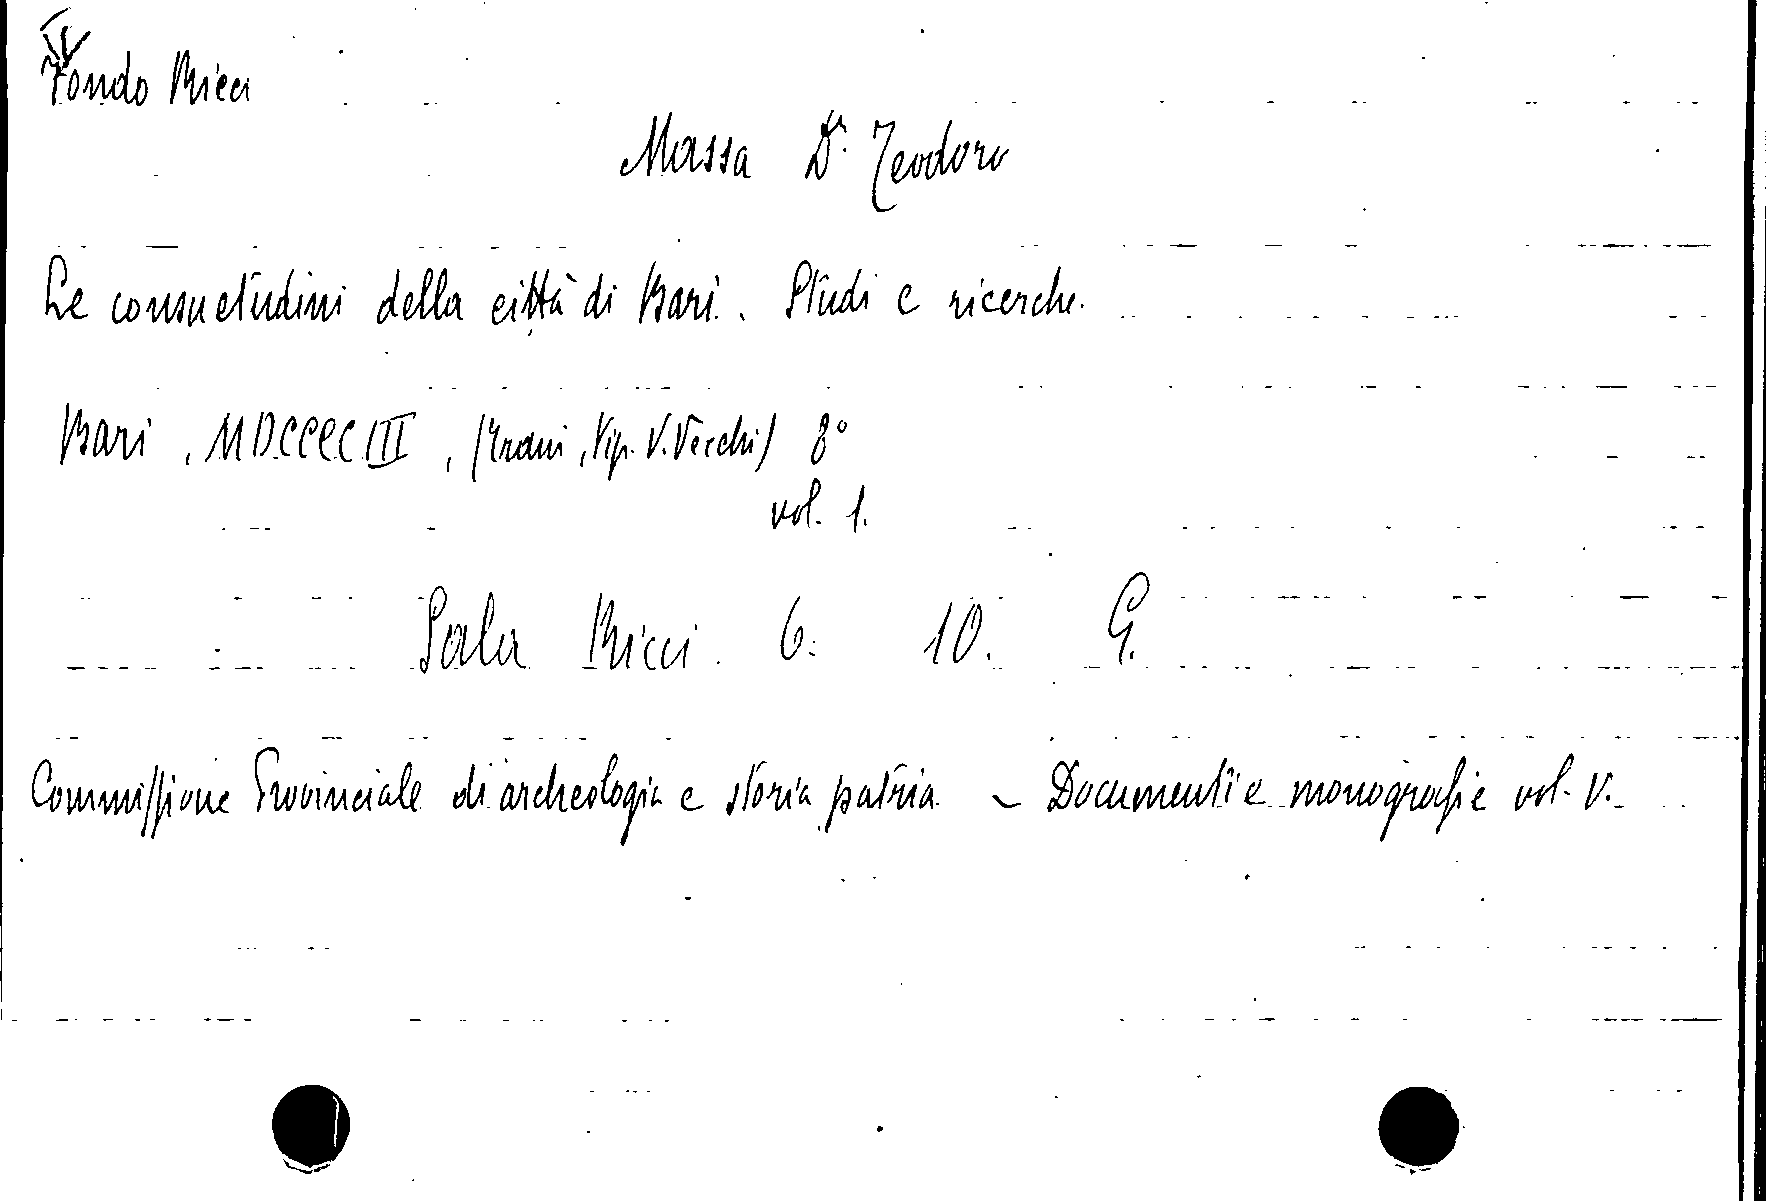 Fondo Ricci
Massa Dr. Teodoro
Le consuetudini della città di Bari. Studi e ricerche.
Bari, MDCCCCIII, (Trani, Tip. V. Vecchi) 8°
vol. 1.
Sala Ricci. 6. 10. G.
Commissione Provinciale di archeologia e storia patria - Documenti e monografie vol. V.